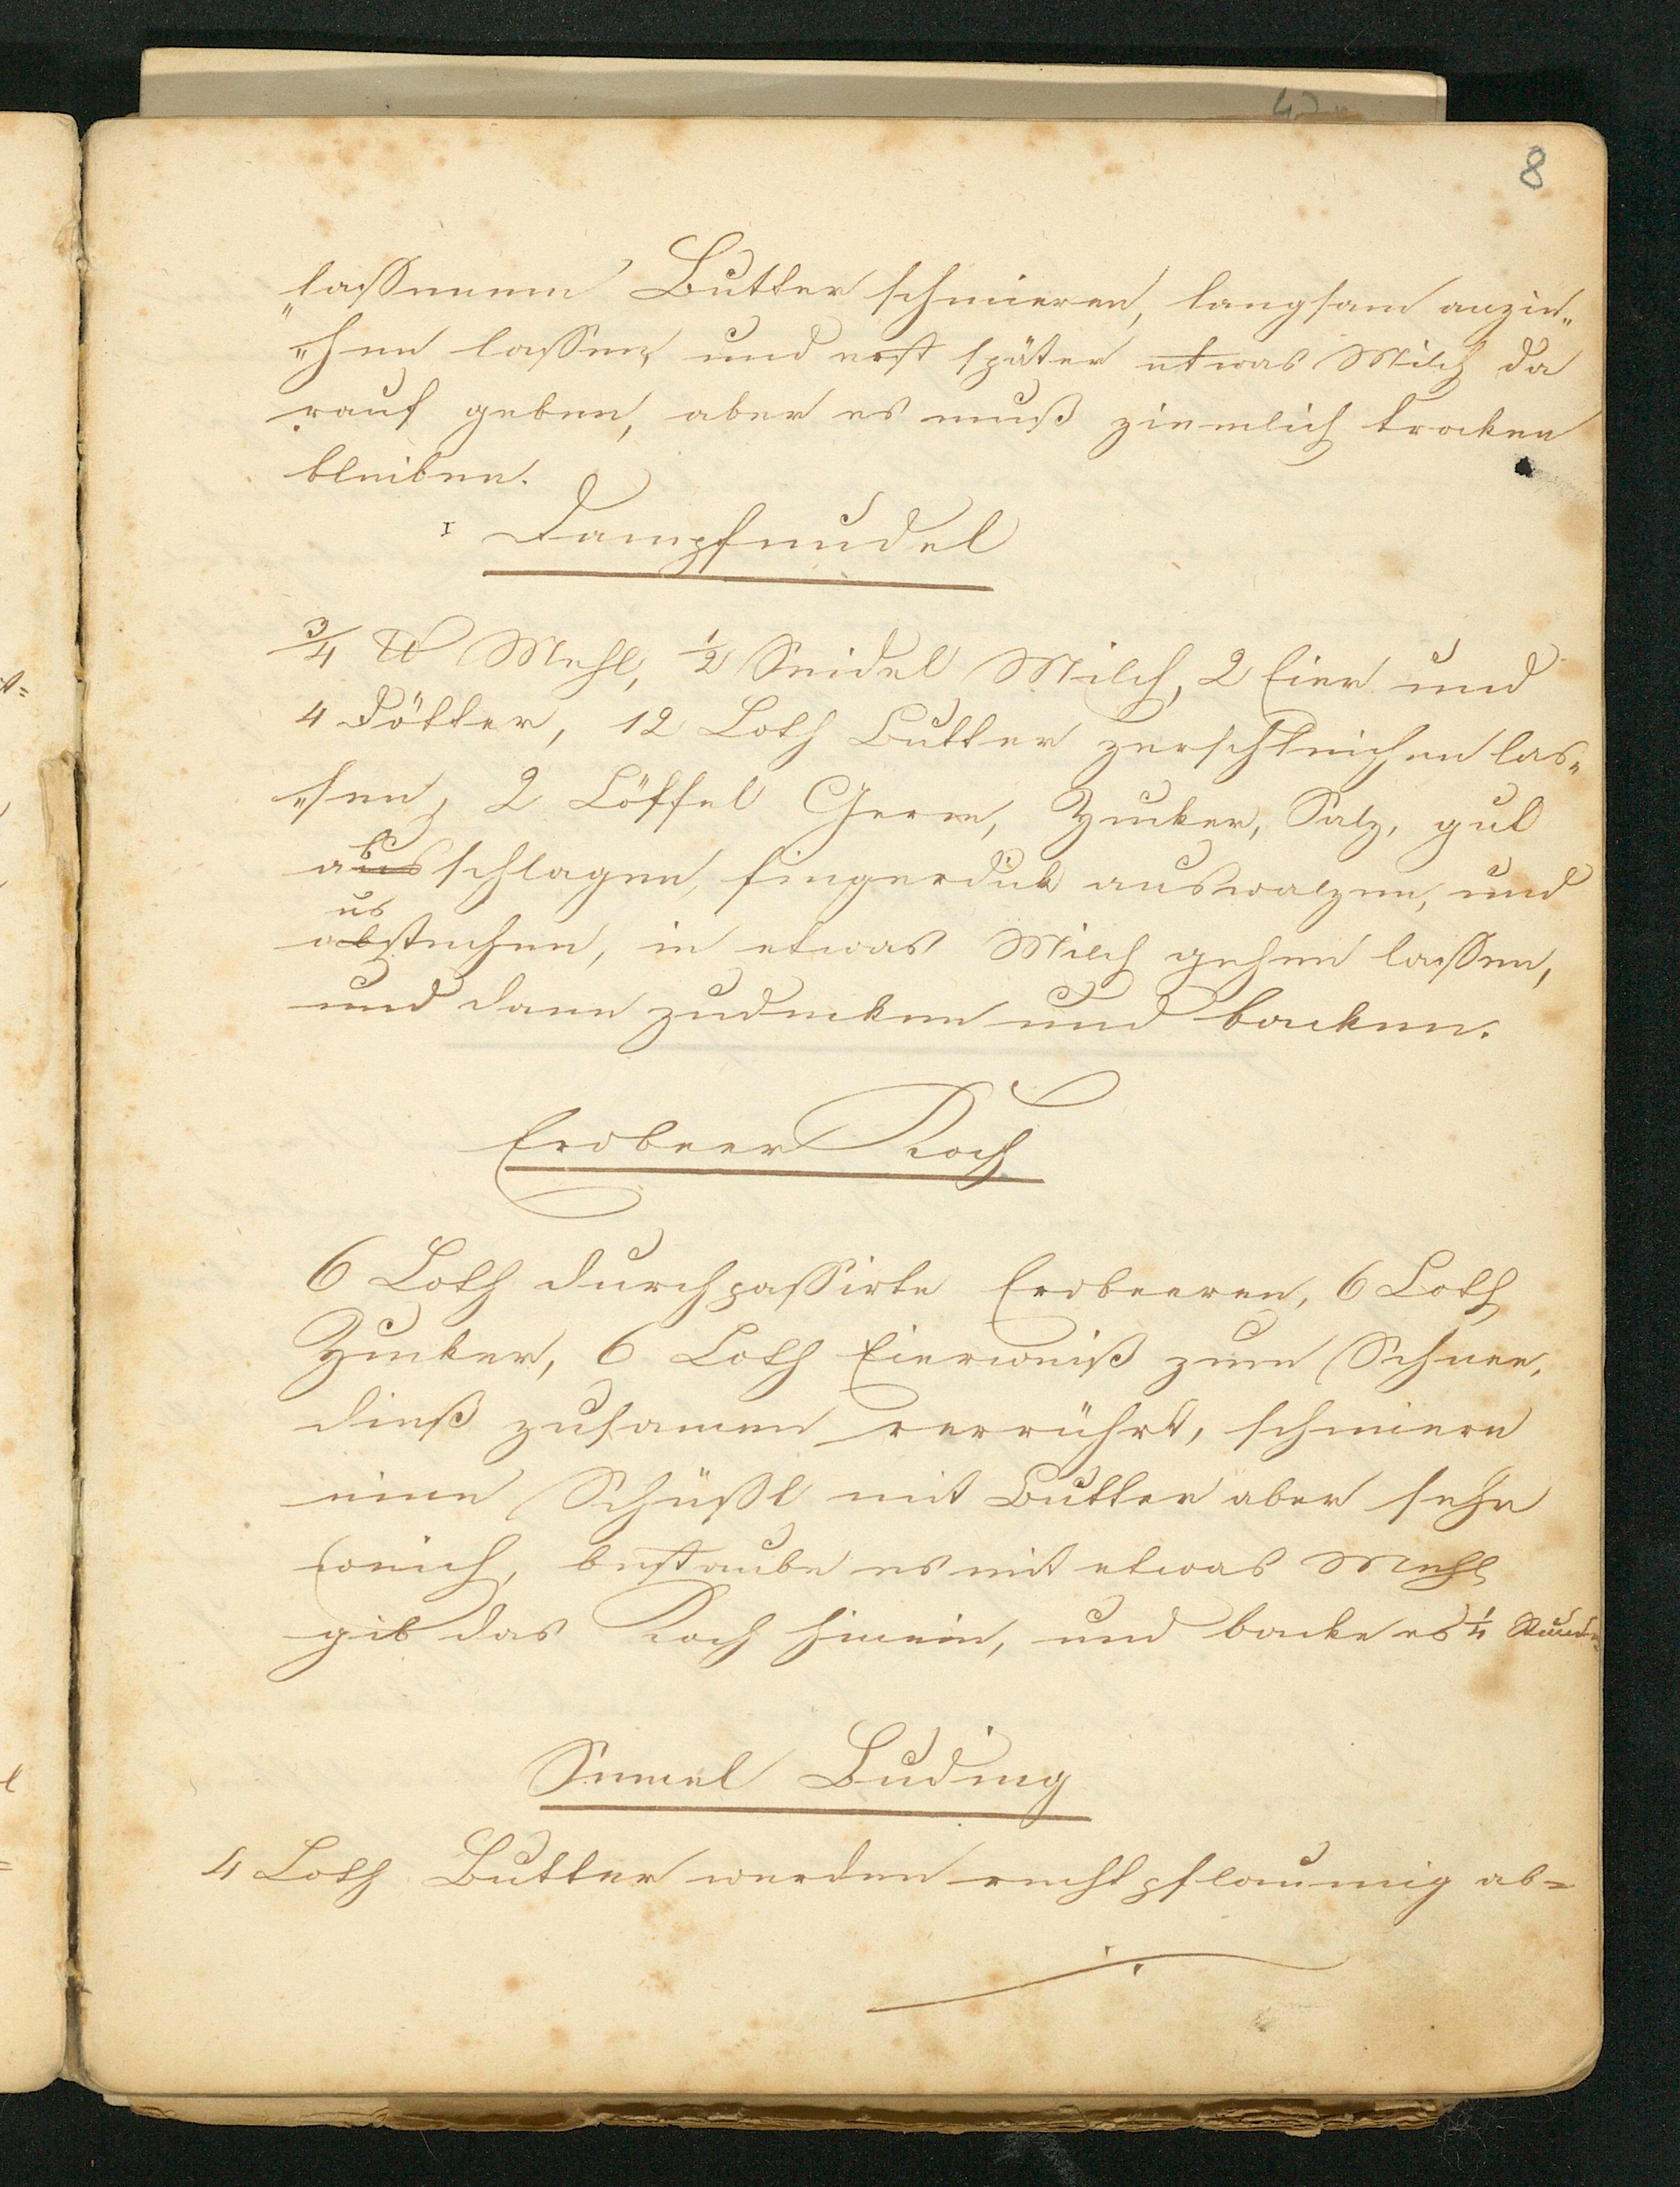 8
„lassenem Butter schmieren, langsam anzie„
„hen lassen, und erst später etwas Milch da
rauf geben, aber es muß ziemlich trocken
bleiben.
I Dampfnudel
3/4 ℔ Mehl, 1/2 Seidel Milch, 2 Eier und
4 Dötter, 12 Loth Butter zerschleichen las„
„sen, 2 Löffel Germ, Zucker, Salz, gut
abschlagen, fingerdick auswalzen, und
ausstechen, in etwas Milch gehen lassen,
und dann zudecken und backen.
Erdbeer Koch
6 Loth durchpassirte Erdbeeren, 6 Loth
Zucker, 6 Loth Eierweiß zum Schnee,
dieß zusamen verrührt, schmiere
eine Schüßl mit Butter aber sehr
weich, bestaube es mit etwas Mehl
gib das Koch hinein, und backe es 1/4 Stunde
Semel Buding
4 Loth Butter werden recht pflaumig ab=